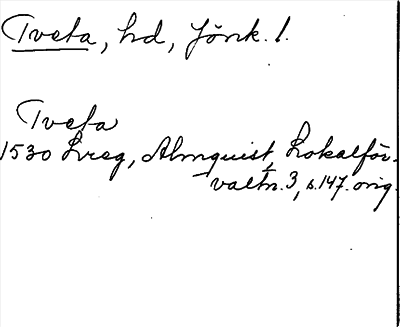 Tveta, hd, Jönk. l.
Tveta
1530 Lreg, Almquist, Lokalför-
valtn. 3, s. 147. orig.